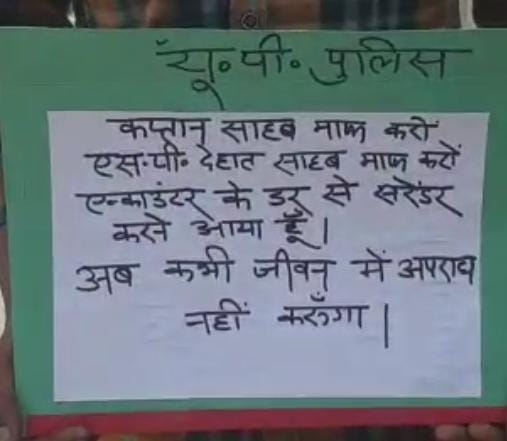 यू॰पी॰ पुलिस
कप्तान साहब माफ करों
एस॰पी॰ देहात साहब माफ करों
एन्काउंटर के डर से सरेंडर
करने आया हूँ।
अब कभी जीवन में अपराध
नहीं करुँगा।